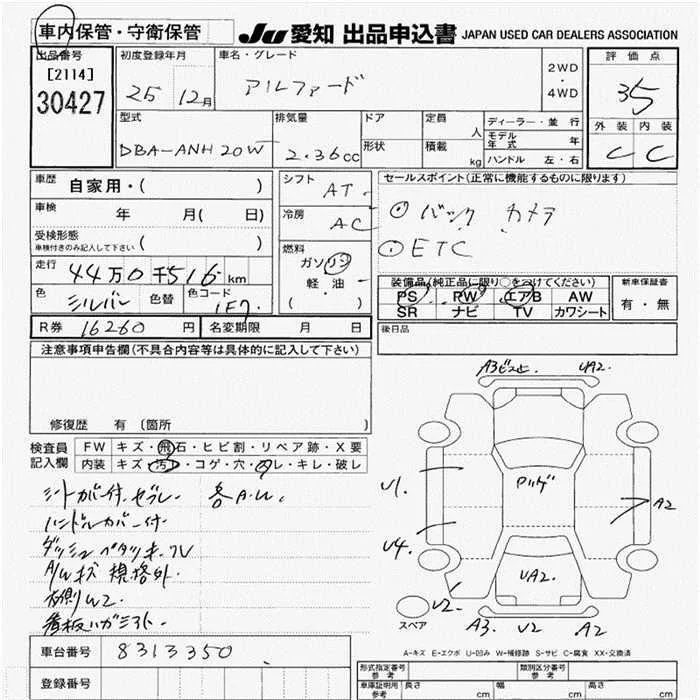 車内保管・守衛保管
JU 愛知 出品申込書 JAPAN USED CAR DEALERS ASSOCIATION
出品番号
[2114]
30427
初度登録年月
25 12月
車名・グレード
アルファード
2WD
・
4WD
評価点
3.5
外装 内装
C C
型式
DBA-ANH20W
排気量
2.36cc
ドア
形状
定員 人
積載 kg
ディーラー・並行
モデル年式 年
ハンドル 左・右
車歴 自家用・( )
車検 年 月( 日)
受検形態
車検付きのみ記入して下さい ( )
走行 44万0千516km
色 シルバー 色替 色コード 1F7
R券 16260 円 名変期限 月 日
シフト AT
冷房 AC
燃料
ガソリン
軽油
( ・ )
セールスポイント(正常に機能するものに限ります)
⊙ バック カメラ
⊙ ETC
装備品(純正品に限り○をつけてください)
PS PW エアB AW
SR ナビ TV カワシート
新車保証書
有・無
後日品
注意事項申告欄(不具合内容等は具体的に記入して下さい)
修復歴 有 〔箇所 〕
検査員
記入欄
FW キズ・飛石・ヒビ割・リペア跡・X要
内装 キズ・汚レ・コゲ・穴・スレ・キレ・破レ
シートカバー付、ゼブレー 各A.U.
ハンドルカバー付
ダッシュ ベタツキ
A/Wキズ 規格外.
右側W2
看板ハガシ
A3 UA2.
U1.
U4.
A2
UA2.
U2.
A3. U2 A2
スペア
A-キズ E-エクボ U-凹み W-補修跡 S-サビ C-腐食 XX-交換済
車台番号 8313350
登録番号
形式指定番号
参考
類別区分番号
参考
車庫証明用
参考
長さ cm 幅 cm 高さ cm